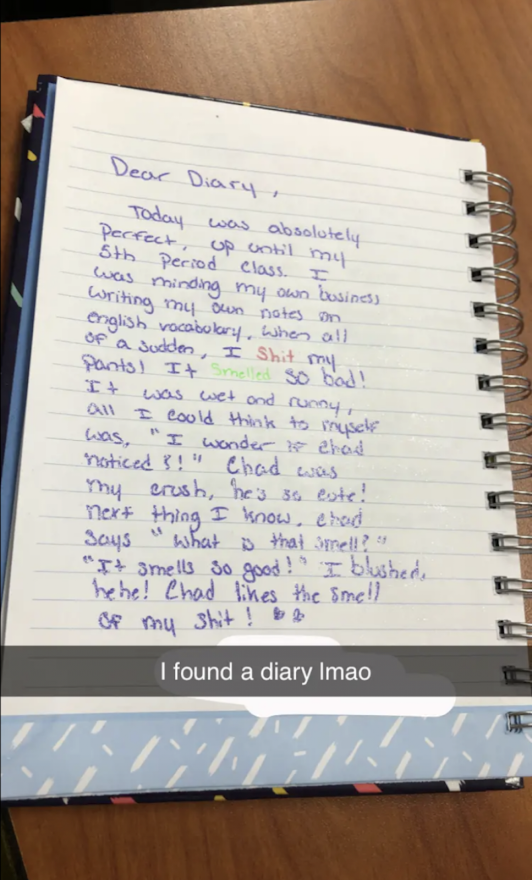 Dear Diary,
Today was absolutely
perfect, up until my
5th period class. I
was minding my own business
writing my own notes on
english vocabulary, when all
of a sudden, I Shit my
pants! It Smelled so bad!
It was wet and runny,
all I could think to myself
was, "I wonder if chad
noticed?!" Chad was
my crush, he's so cute!
next thing I know, chad
says "what is that smell?"
"It smells so good!" I blushed,
hehe! Chad likes the smell
of my shit!
I found a diary lmao